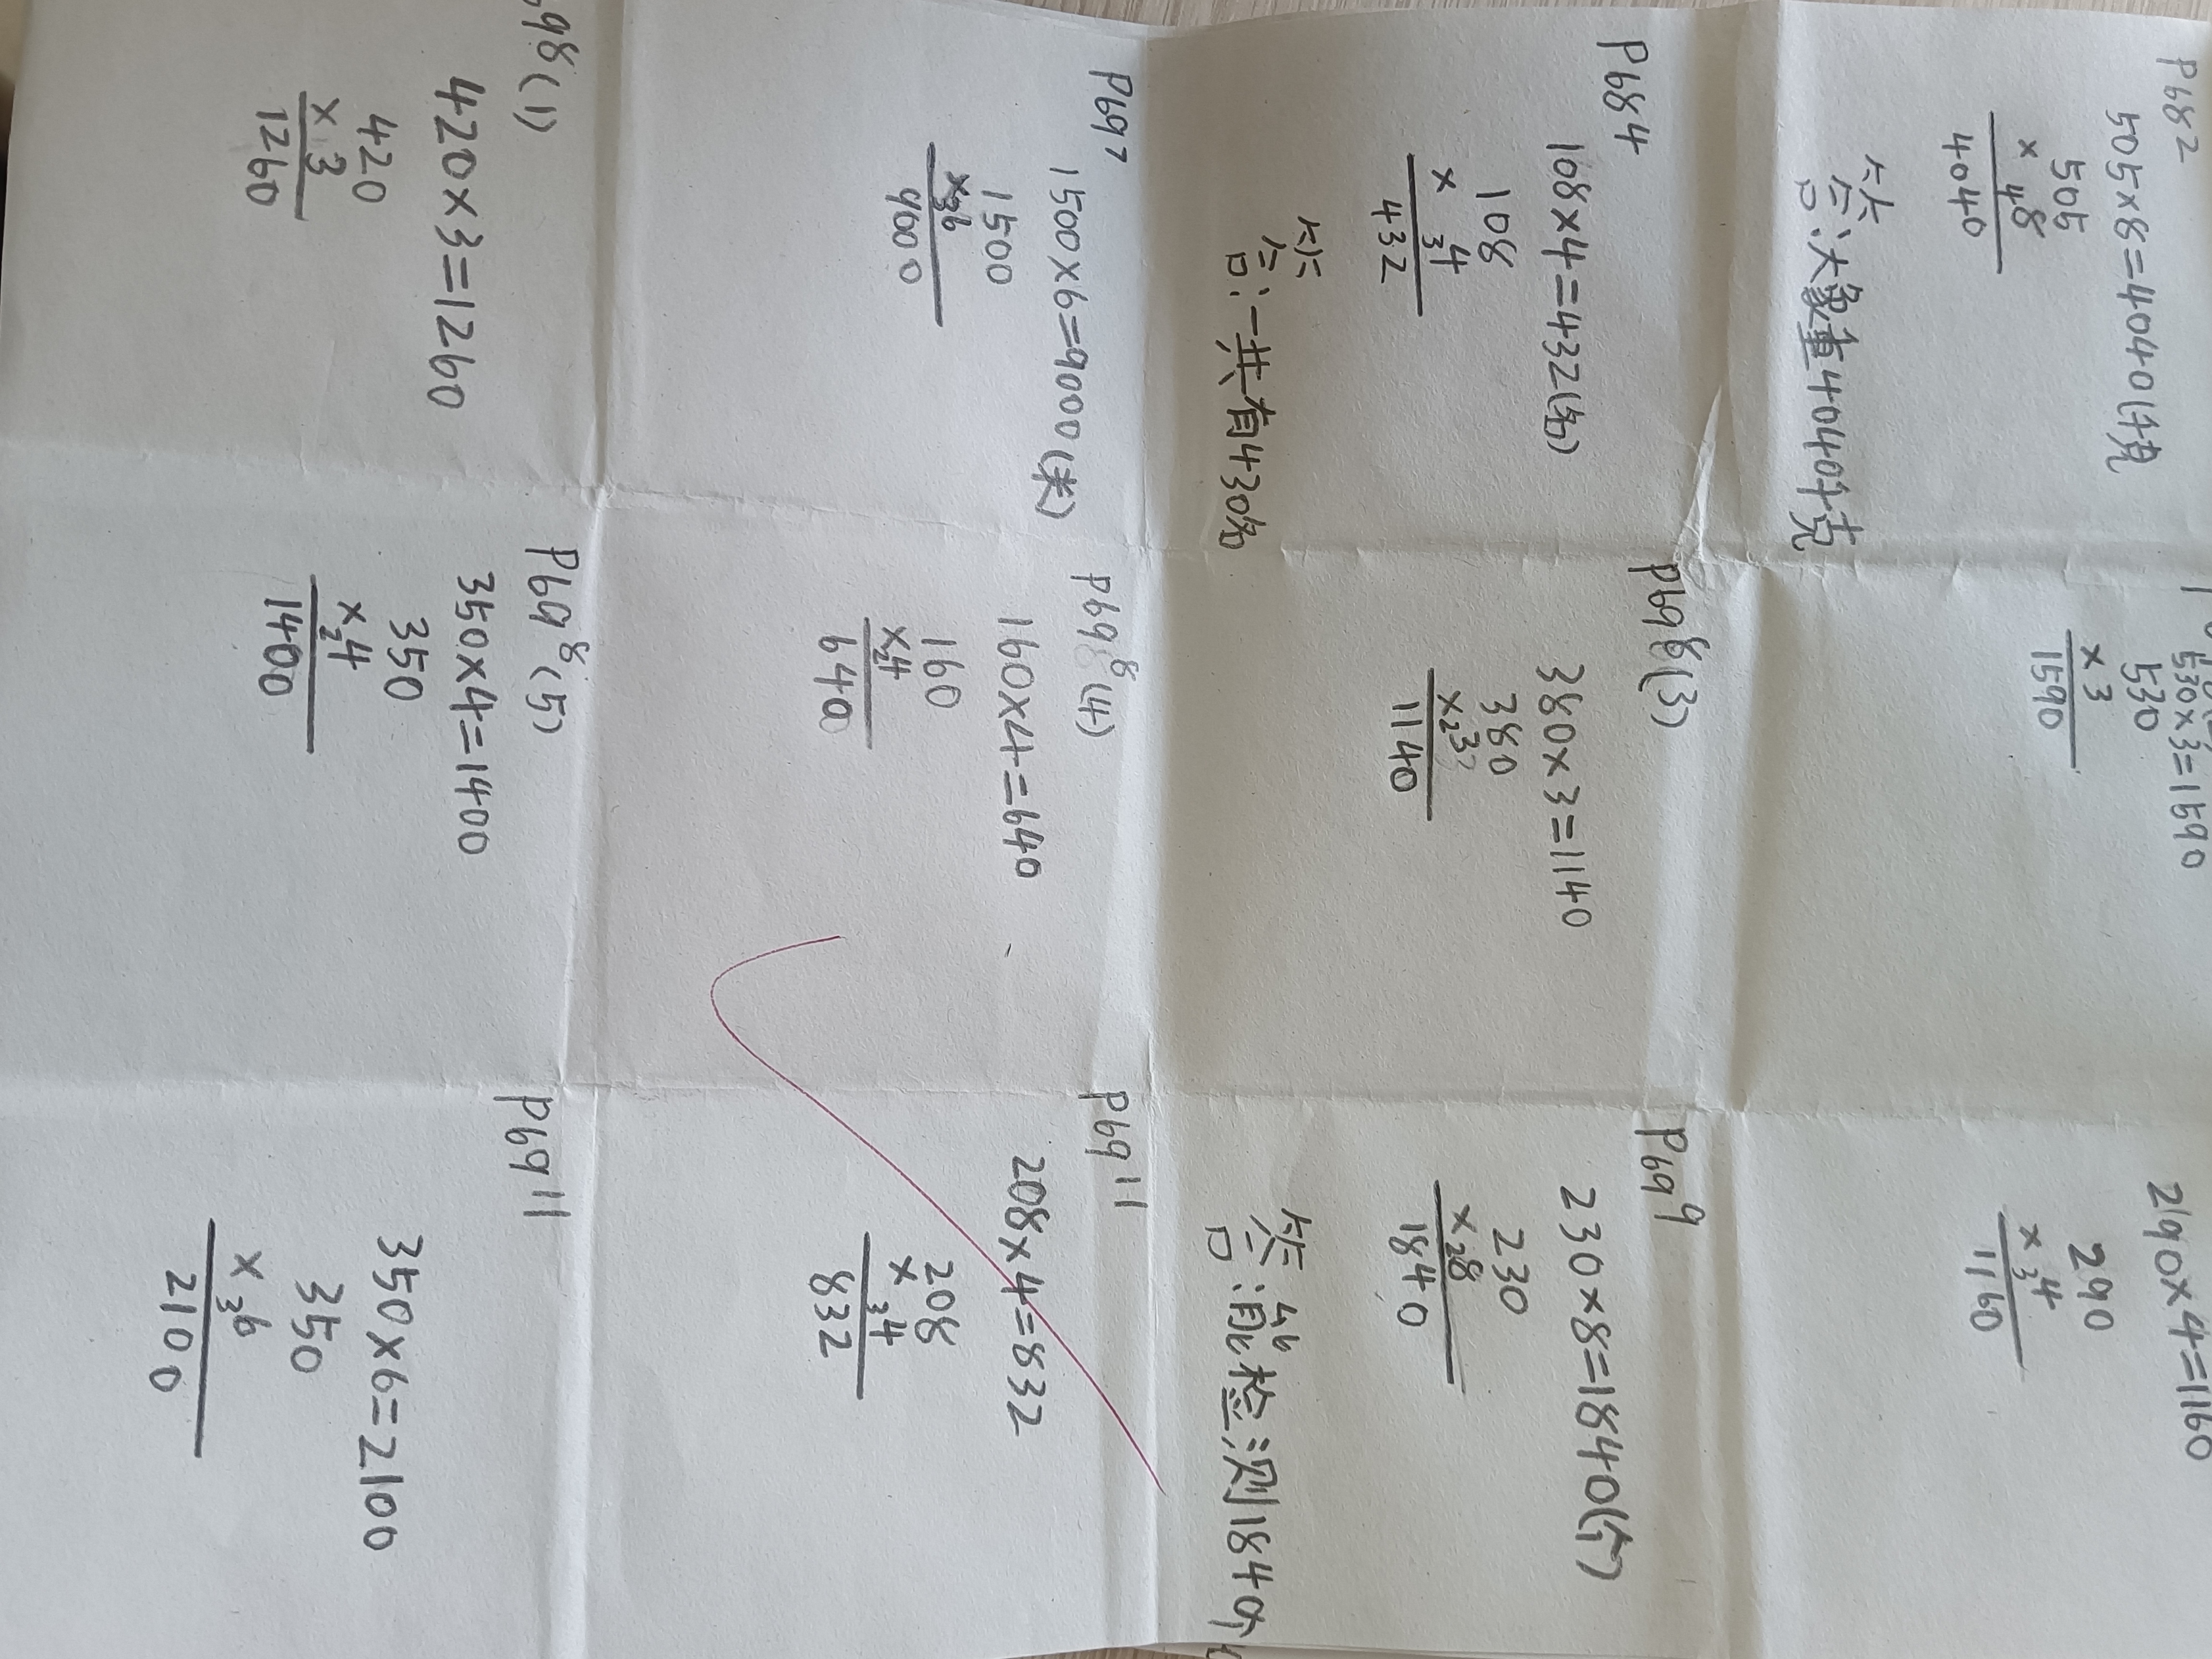 P68 2
505×8=4040(千克
505
× 48
4040
答:大象重4040千克
530×3=1590
530
× 3
1590
290×4=1160
290
× 34
1160
P68 4
108×4=432(名)
108
× 34
432
答:一共有430名
P69 8(3)
380×3=1140
380
×23
1140
P69 9
230×8=1840(个)
230
×28
1840
答:能检测1840个
P69 7
1500×6=9000(米)
1500
×36
9000
P69 8(4)
160×4=640
160
×24
640
P69 11
208×4=832
208
× 34
832
98(1)
420×3=1260
420
× 3
1260
P69 8(5)
350×4=1400
350
×24
1400
P69 11
350×6=2100
350
× 36
2100